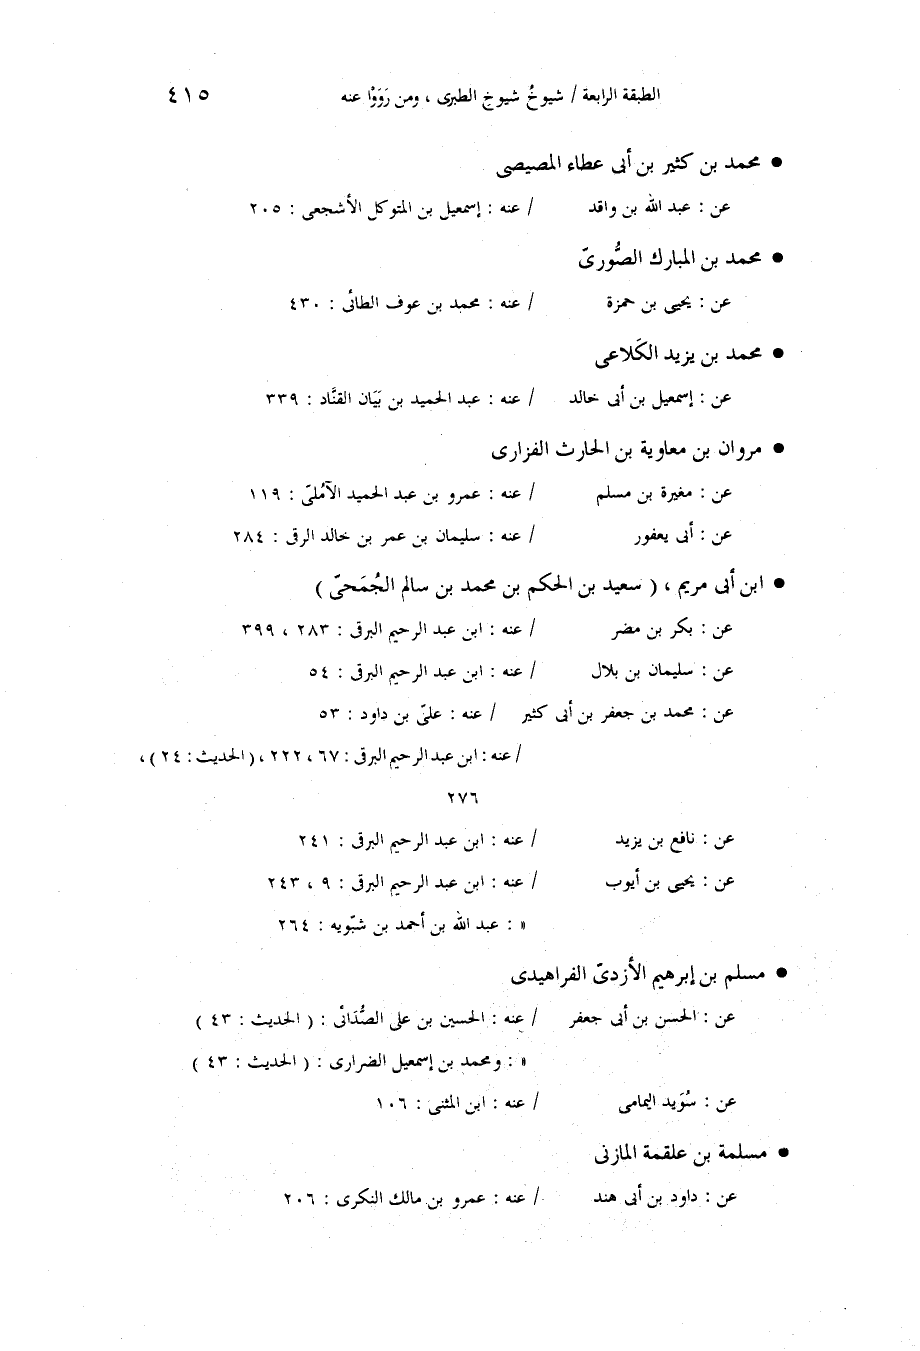 الطبقة الرابعة / شيوخُ شيوخِ الطبرى ، ومن رَوَوْا عنه ٤١٥
● محمد بن كثير بن أبى عطاء المصيصى
عن : عبد الله بن واقد / عنه : إسمعيل بن المتوكل الأشجعى : ٢٠٥
● محمد بن المبارك الصُّورىّ
عن : يحيى بن حمزة / عنه : محمد بن عوف الطائى : ٤٣٠
● محمد بن يزيد الكَلاعى
عن : إسمعيل بن أبى خالد / عنه : عبد الحميد بن بَيَان القنَّاد : ٣٣٩
● مروان بن معاوية بن الحارث الفزارى
عن : مغيرة بن مسلم / عنه : عمرو بن عبد الحميد الآمُلىّ : ١١٩
عن : أبى يعفور / عنه : سليمان بن عمر بن خالد الرقى : ٢٨٤
● ابن أبى مريم ، ( سعيد بن الحكم بن محمد بن سالم الجُمَحىّ )
عن : بكر بن مضر / عنه : ابن عبد الرحيم البرقى : ٢٨٣ ، ٣٩٩
عن : سليمان بن بلال / عنه : ابن عبد الرحيم البرقى : ٥٤
عن : محمد بن جعفر بن أبى كثير / عنه : علىّ بن داود : ٥٣
/ عنه : ابن عبد الرحيم البرقى : ٦٧ ، ٢٢٢ ، ( الحديث : ٢٤ ) ،
٢٧٦
عن : نافع بن يزيد / عنه : ابن عبد الرحيم البرقى : ٢٤١
عن : يحيى بن أيوب / عنه : ابن عبد الرحيم البرقى : ٩ ، ٢٤٣
» : عبد الله بن أحمد بن شبّويه : ٢٦٤
● مسلم بن إبرهيم الأزدىّ الفراهيدى
عن : الحسن بن أبى جعفر / عنه : الحسين بن على الصُّدَائى : ( الحديث : ٤٣ )
» : ومحمد بن إسمعيل الضرارى : ( الحديث : ٤٣ )
عن : سُوَيد اليمامى / عنه : ابن المثنى : ١٠٦
● مسلمة بن علقمة المازنى
عن : داود بن أبى هند / عنه : عمرو بن مالك النكرى : ٢٠٦